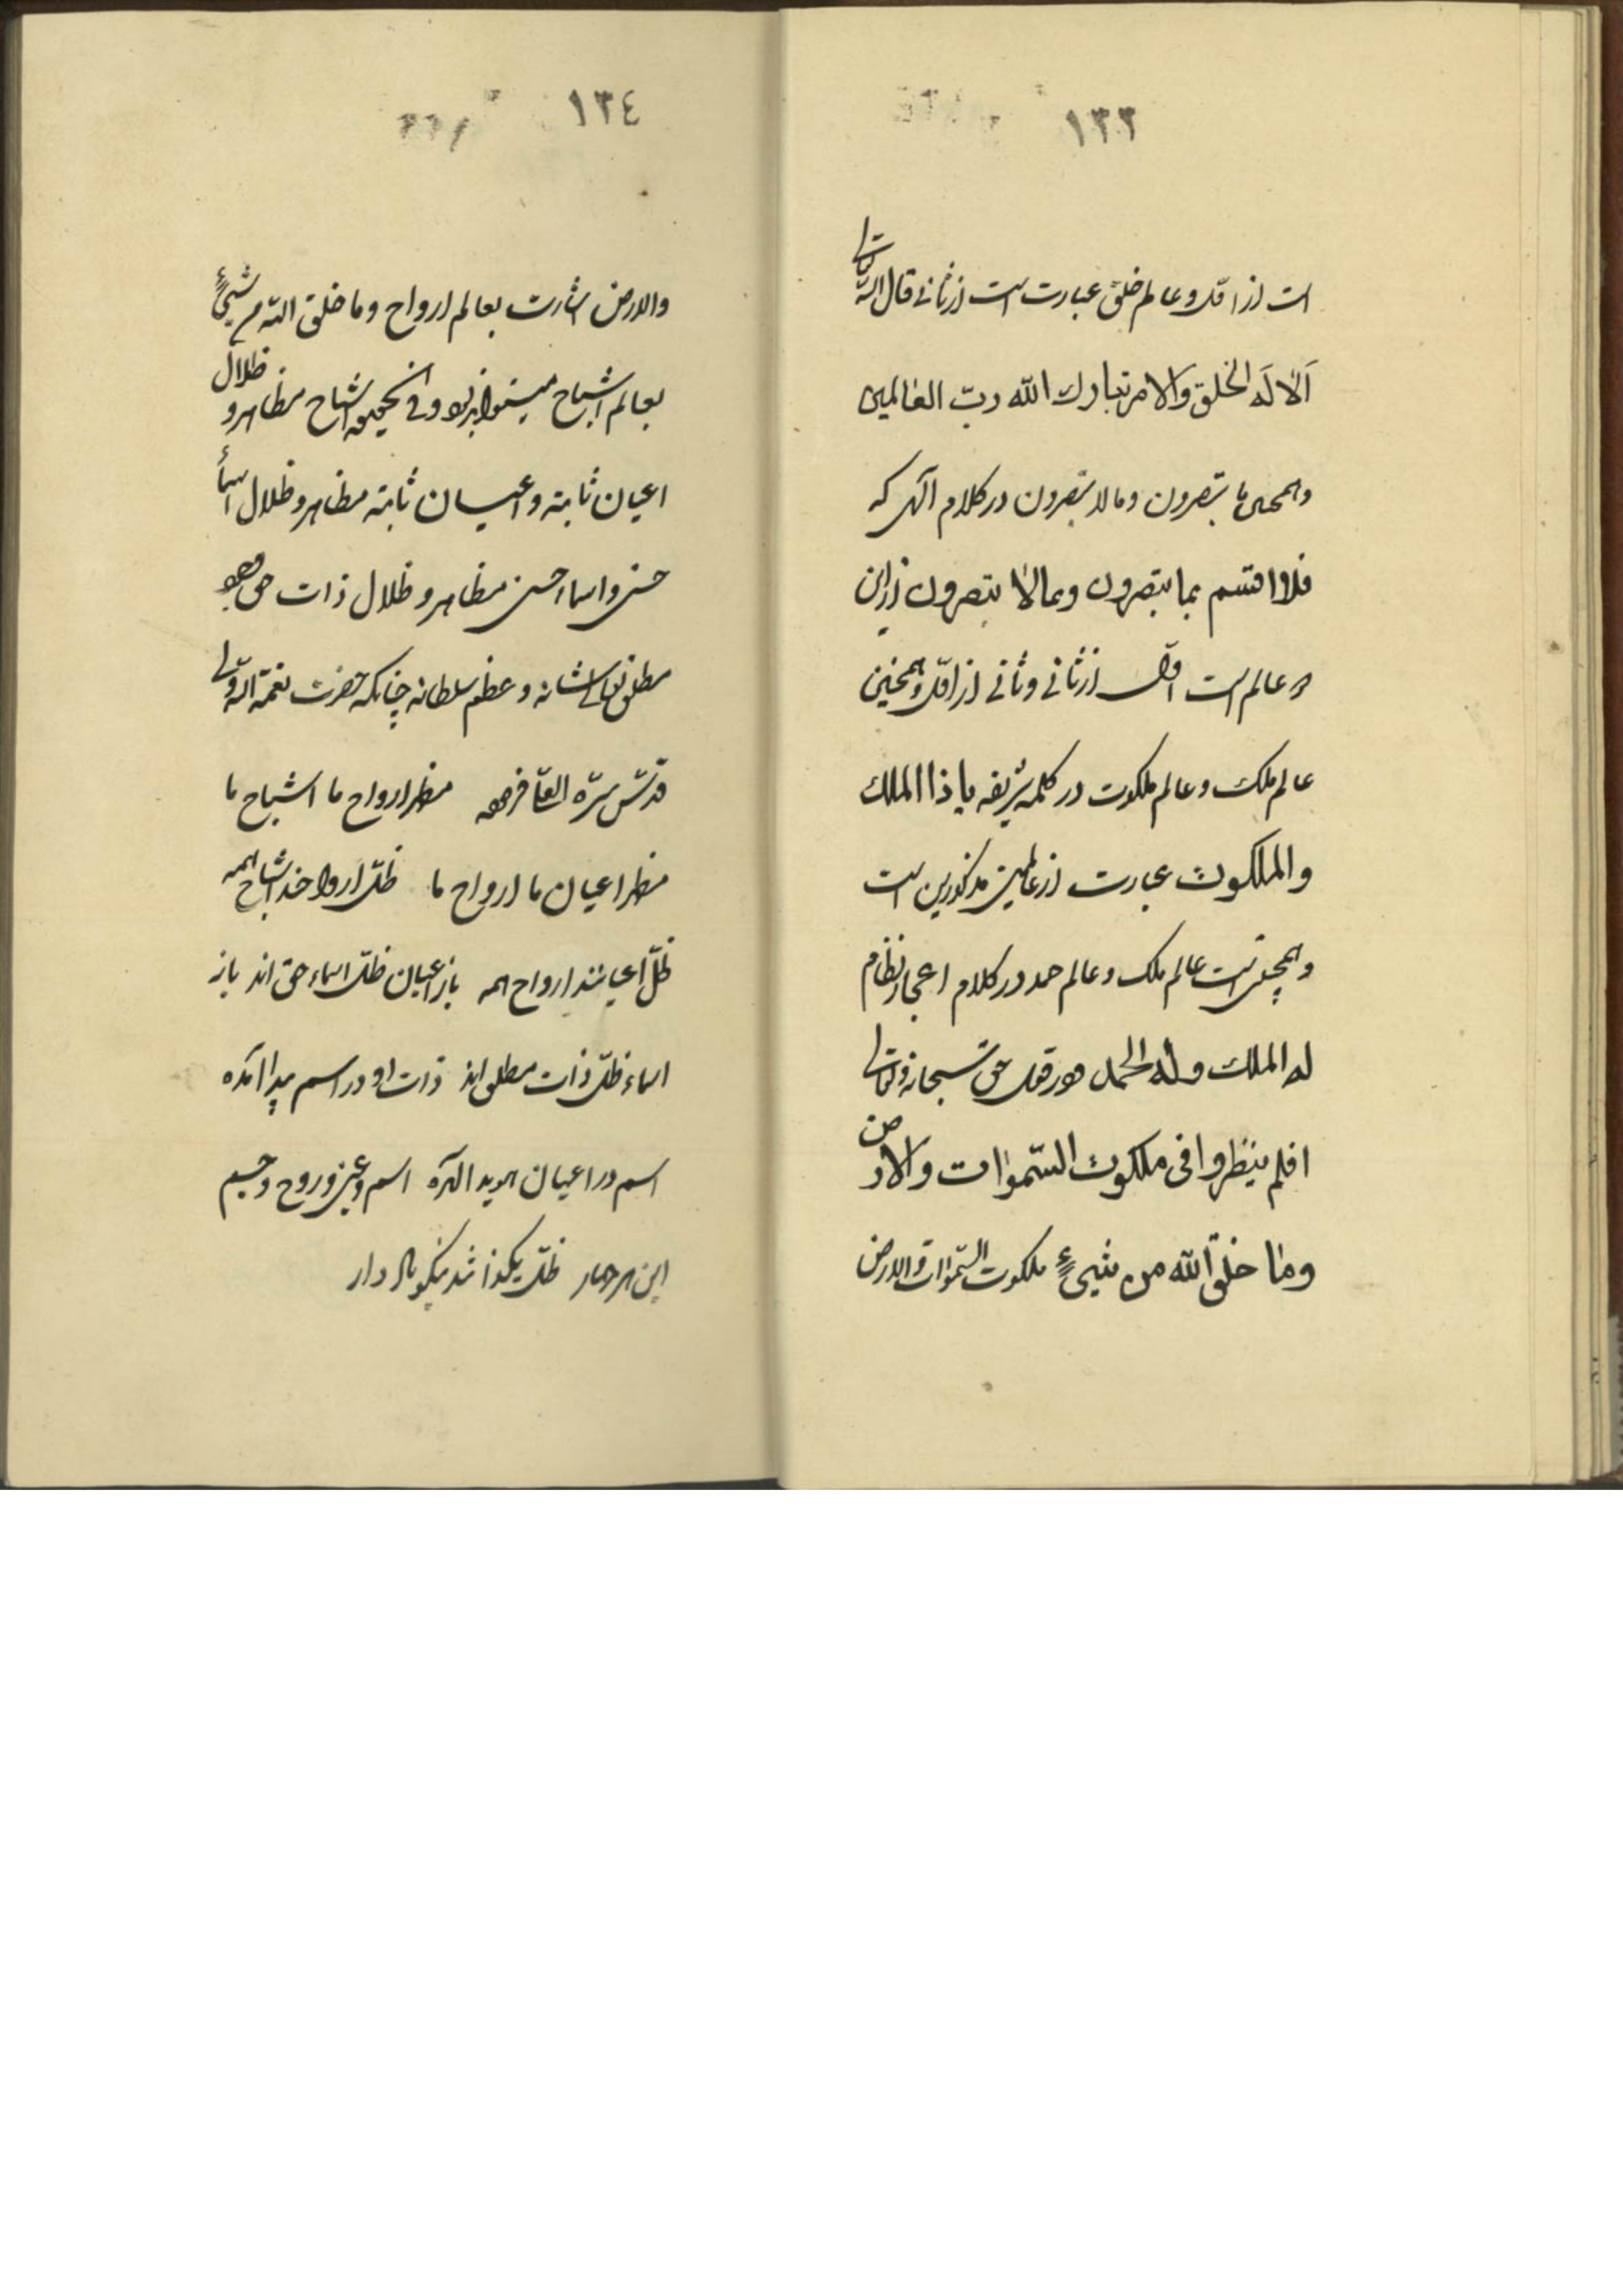 ١٣٣
است از اوّل و عالم خلق عبارت است از ثانی قال اللّه تعالی
اَلا لَه الخلق والامر تبارك اللّه ربّ العالمین
و همچنین ما تبصرون و ما لا تبصرون در کلام الهی که
فلا اقسم بما تبصرون وما لا تبصرون از این
دو عالم است اوّل از ثانی و ثانی از اوّل و همچنین
عالم ملک و عالم ملکوت در کلمه شریفه یا ذا الملك
والملكوت عبارت از عالمین مذکورین است
و همچنین است عالم ملک و عالم حمد در کلام اعجاز نظام
له الملك وله الحمد و در قول حق سبحانه و تعالی
افلم ینظروا فی ملكوت السّموات والارض
وما خلق اللّه من شیءٍ ملکوت السّموات والارض
١٣٤
والارض اشارت بعالم ارواح وما خلق اللّه من شیءٍ
بعالم اشباح میتواند بود و فی الحقیقه اشباح مظاهر و ظلال
اعیان ثابته و اعیان ثابته مظاهر و ظلال اسماء
حسنی و اسماء حسنی مظاهر و ظلال ذات حق وجود
مطلق تعالی شانه و عظم سلطانه چنانکه حضرت نعمة اللّه ولی
قدّس سرّه العزیز فرموده مظهر ارواح ما اشباح ما
مظهر اعیان ما ارواح ما ظلّ ارواحند اشباح همه
ظلّ اعیانند ارواح همه باز اعیان ظلّ اسماء حق اند باز
اسماء ظلّ ذات مطلق اند ذات او در اسم پیدا آمده
اسم در اعیان هویدا آمده اسم و عین و روح و جسم
این هر چهار ظلّ یکذاتند نیکو یاد دار